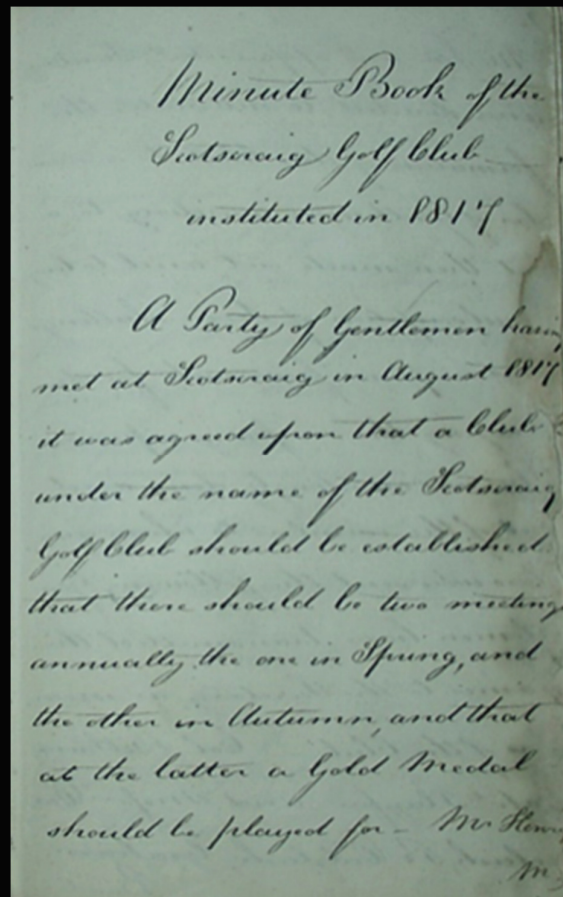 Minute Book of the
Scotscraig Golf Club
instituted in 1817
A Party of Gentlemen havin
met at Scotscraig in August 1817
it was agreed upon that a Club
under the name of the Scotscraig
Golf Club should be established
that there should be two meetings
annually, the one in Spring, and
the other in Autumn, and that
at the latter a Gold Medal
should be played for — Mr Henry